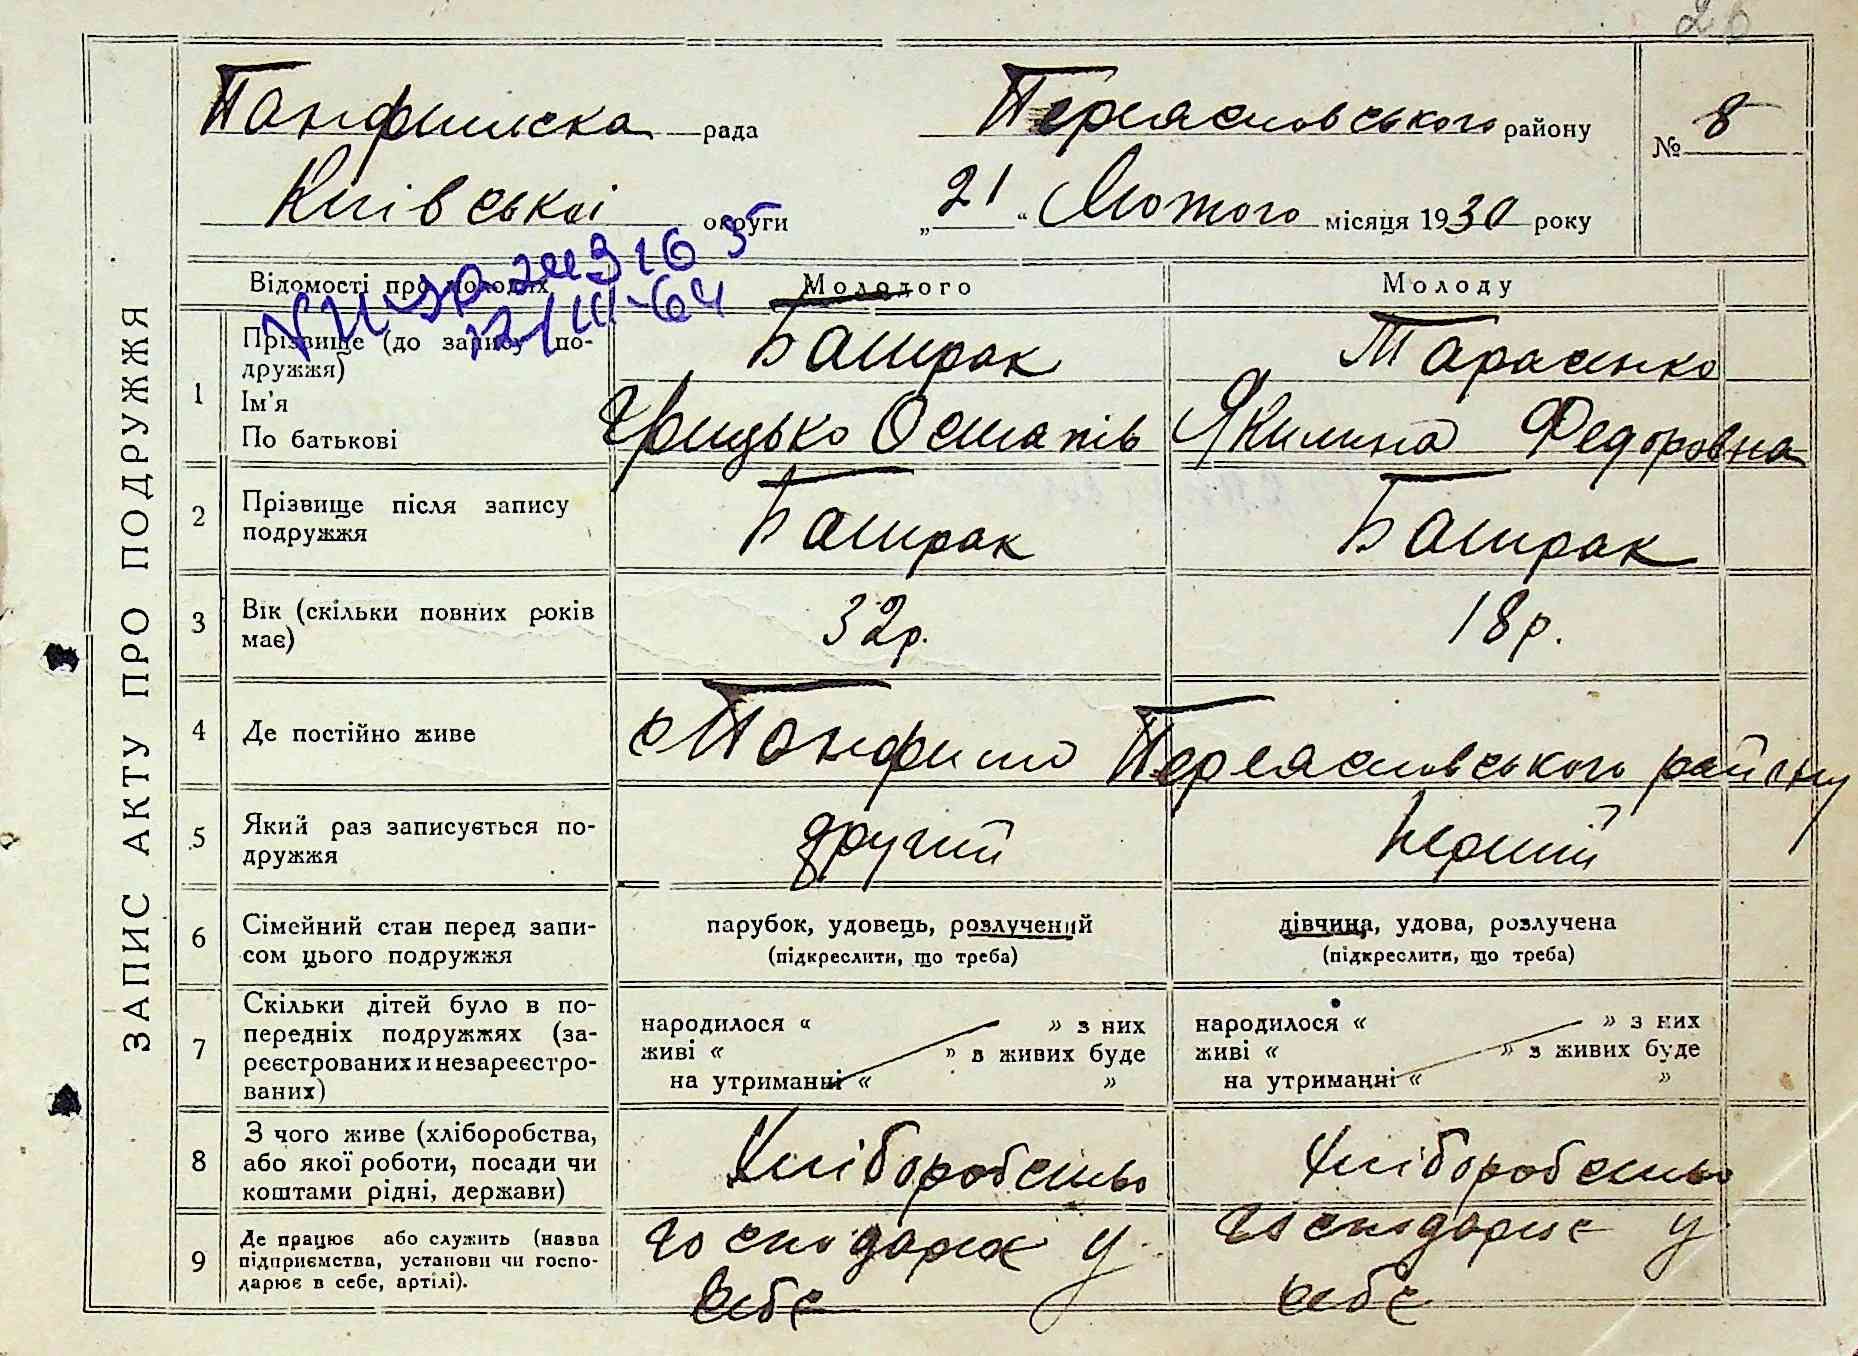 26
Панфилска рада Переяславського району № 8
Київської округи „21" Лютого місяця 1930 року
ЗАПИС АКТУ ПРО ПОДРУЖЖЯ
Відомості про молодих Молодого Молоду
21/III-64
1 Прізвище (до запису подружжя) Баштрак Тарасенко
Ім'я
По батькові Грицько Осипів Якилина Федоровна
2 Прізвище після запису
подружжя
3 Вік (скільки повних років 32р. 18р.
має)
4 Де постійно живе с Панфили Переяславського району
5 Який раз записується по-
дружжя другий Перший
6 Сімейний стан перед запи- парубок, удовець, розлучений дівчина, удова, розлучена
сом цього подружжя (підкреслити, що треба) (підкреслити, що треба)
7 Скільки дітей було в по-
передніх подружжях (за- народилося « » з них народилося « » з них
реєстрованих и незареєстро- живі « » в живих буде живі « » з живих буде
ваних) на утриманні « » на утриманні « »
8 З чого живе (хліборобства,
або якої роботи, посади чи Хліборобством Хліборобством
коштами рідні, держави)
9 Де працює або служить (назва господарює у господарює у
підприємства, установи чи госпо-
дарює в себе, артілі). себе себе